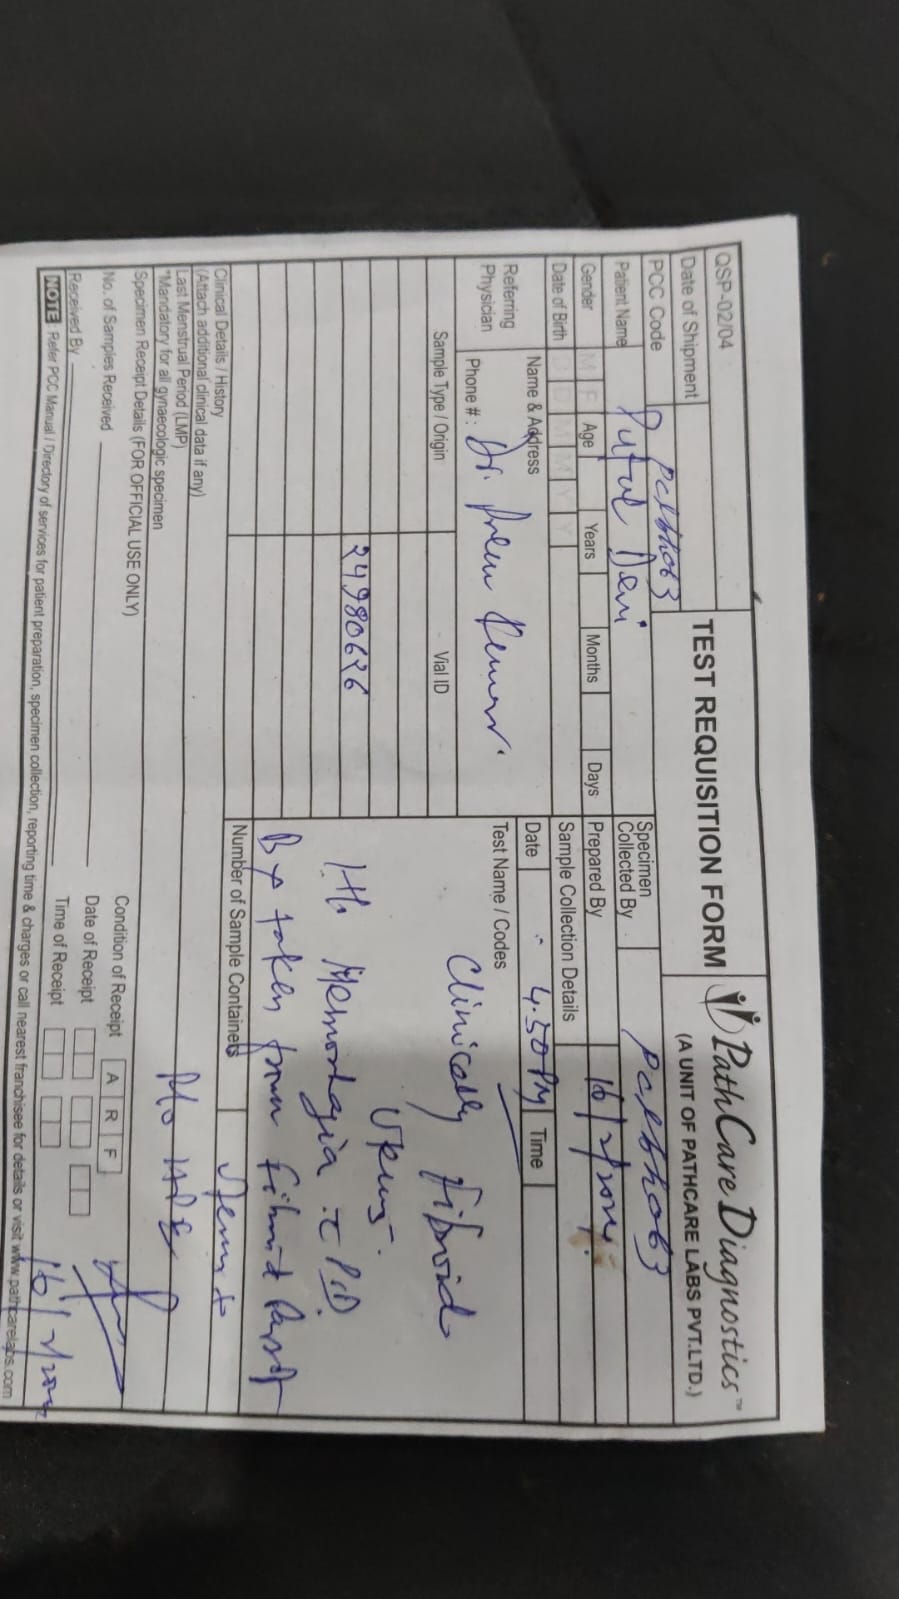 QSP-02/04
TEST REQUISITION FORM
PathCare Diagnostics™
(A UNIT OF PATHCARE LABS PVT.LTD.)
Date of Shipment
PCC Code
Patient Name Putul Devi
Gender M F Age Years Months Days
Date of Birth D D M M Y Y
Referring Physician
Name & Address
Phone #: Dr. Prem
Specimen Collected By
Prepared By
Sample Collection Details
Date 4.50 PM Time
Sample Type / Origin Vial ID
24980696
Test Name / Codes
Clinically Fibroid
H/o Menorrhagia c PID
By taken from Fibroid
Number of Sample Containers
Clinical Details / History
(Attach additional clinical data if any)
Last Menstrual Period (LMP)
*Mandatory for all gynaecologic specimen
Specimen Receipt Details (FOR OFFICIAL USE ONLY)
No. of Samples Received
Condition of Receipt A R F
Date of Receipt
Received By
Time of Receipt
NOTE: Refer PCC Manual / Directory of services for patient preparation, specimen collection, reporting time & charges or call nearest franchisee for details or visit www.pathcarelabs.com